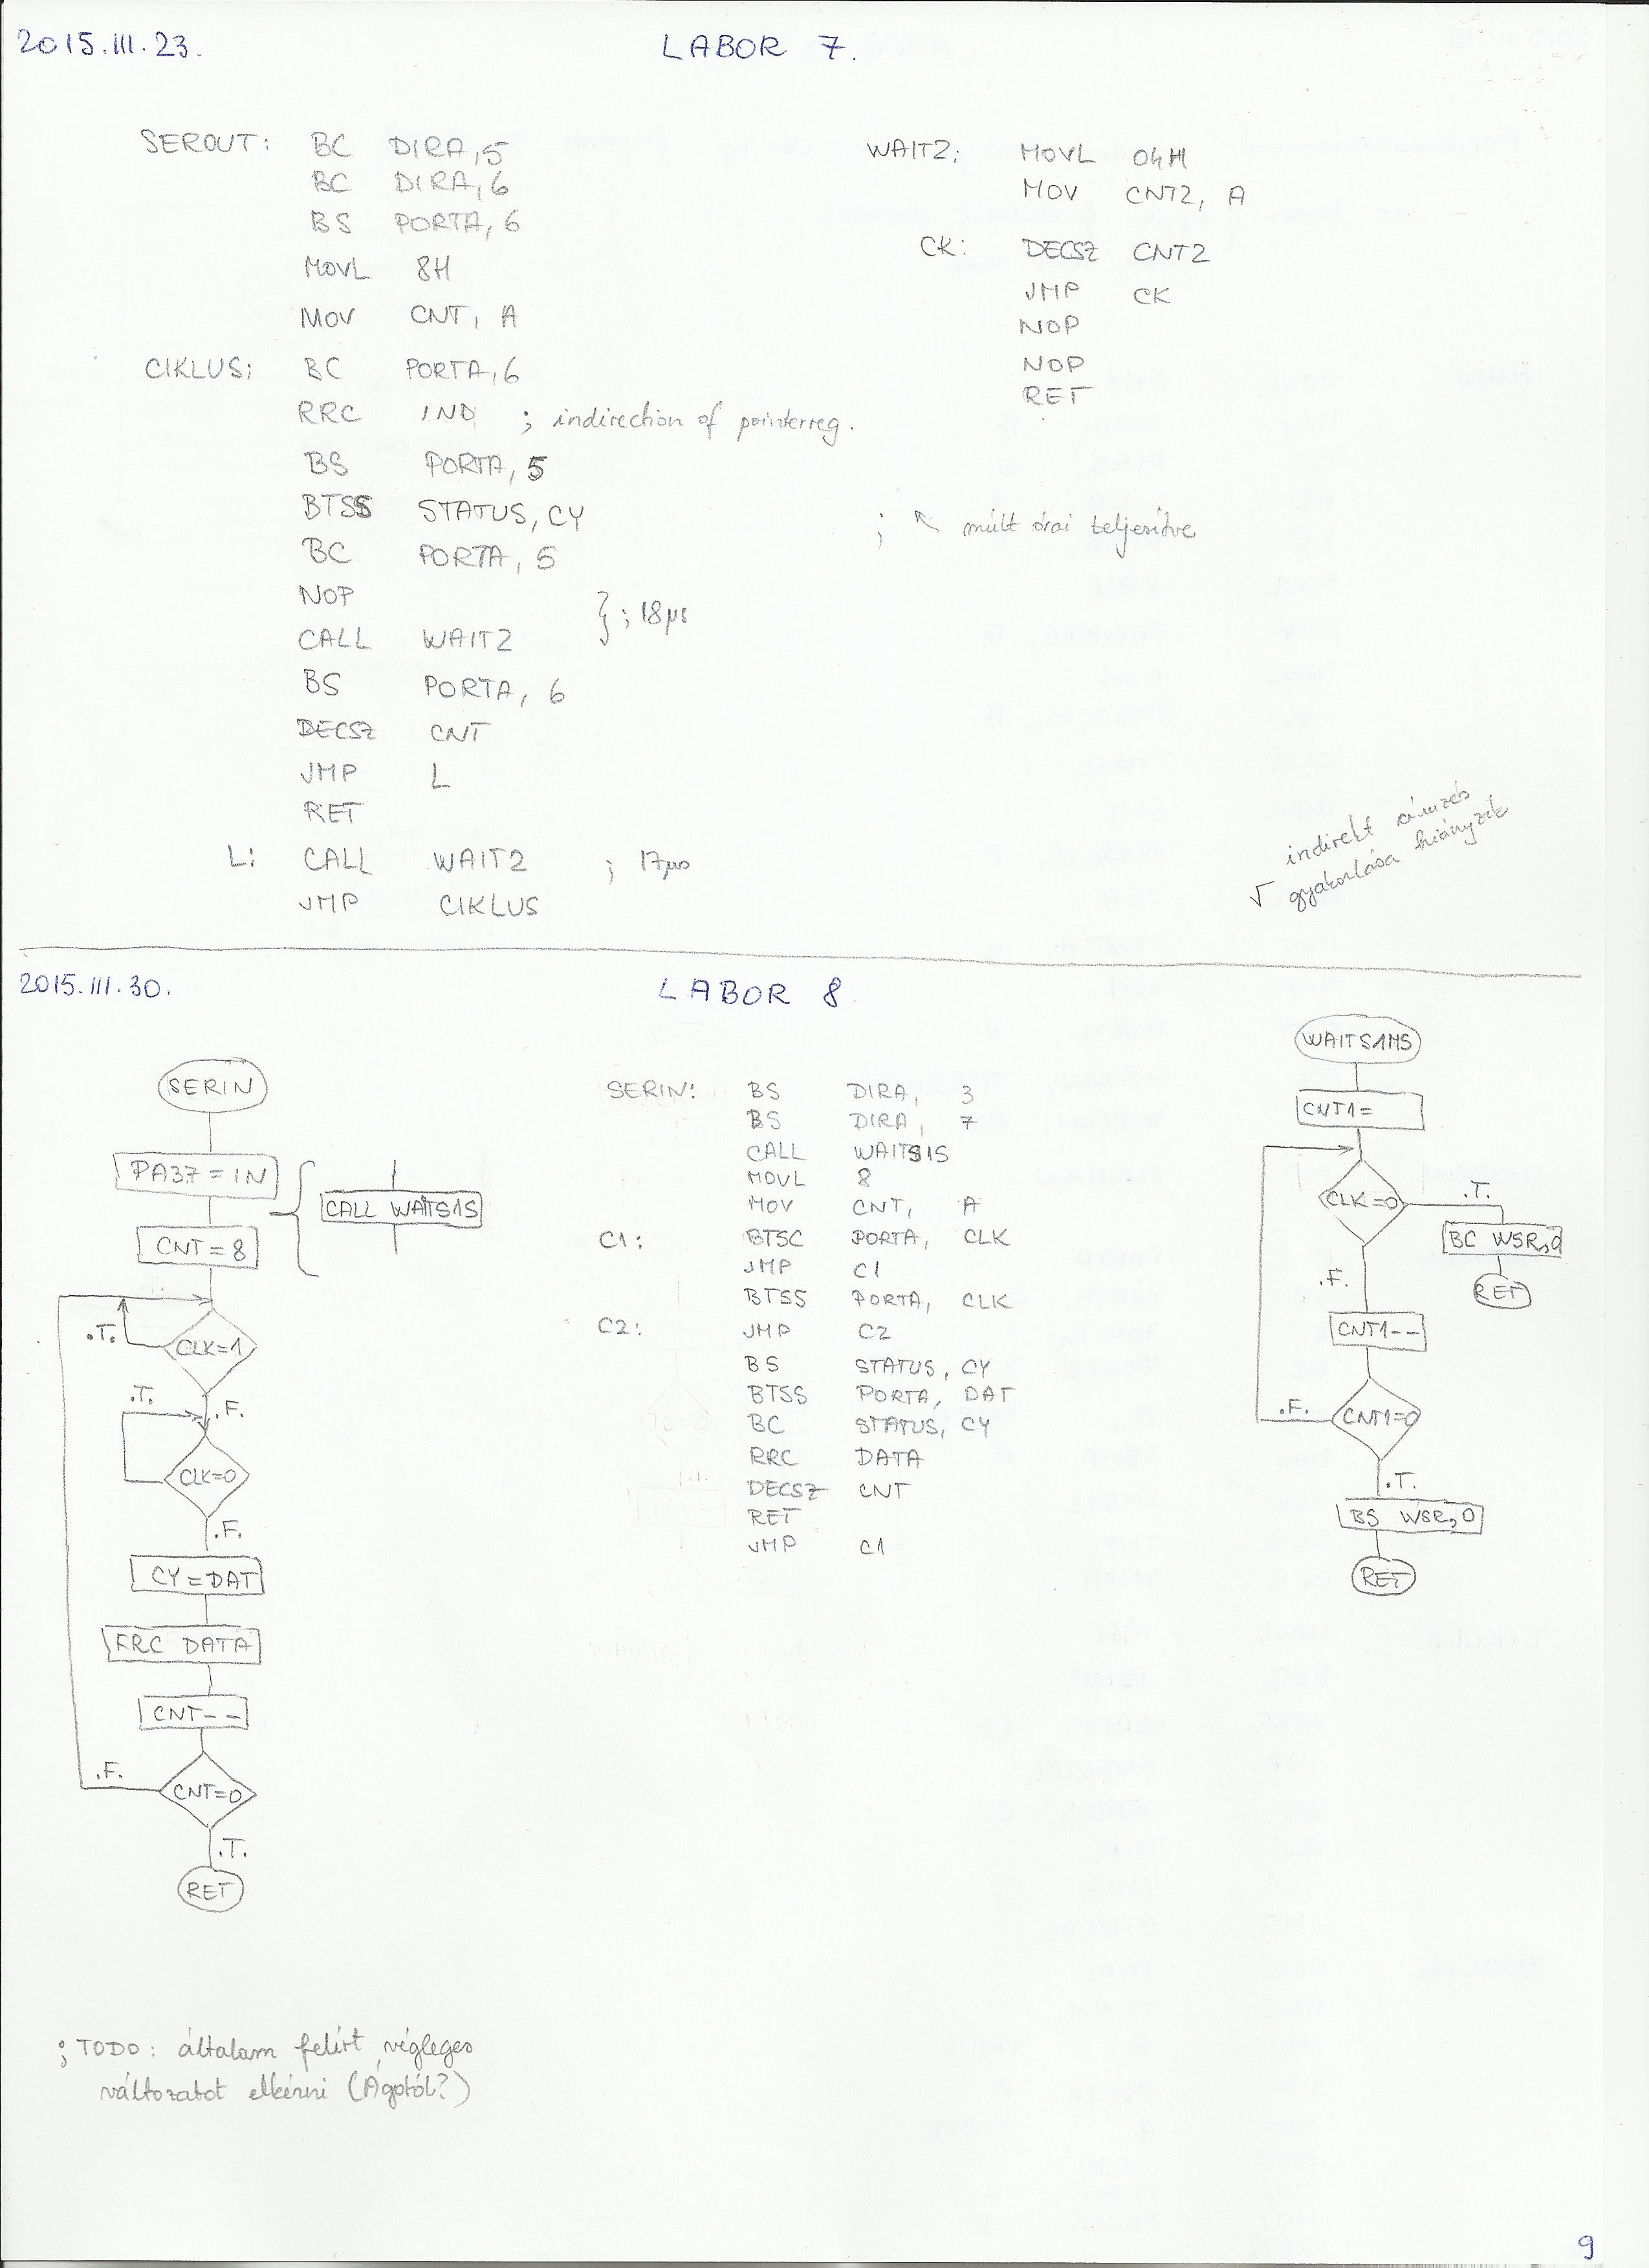 2015.III.23.
LABOR 7.
SEROUT: BC DIRA,5
BC DIRA,6
BS PORTA,6
MOVL 8H
MOV CNT, A
CIKLUS: BC PORTA,6
RRC IND ; indirection of pointerreg.
BS PORTA,5
BTSS STATUS,CY
BC PORTA,5
NOP
CALL WAIT2
} ; 18µs
BS PORTA,6
DECSZ CNT
JMP L
RET
L: CALL WAIT2 ; 17µs
JMP CIKLUS
WAIT2: MOVL 04H
MOV CNT2, A
CK: DECSZ CNT2
JMP CK
NOP
NOP
RET
; ↖ múlt órai teljesítve
indirekt címzés
√ gyakorlása hiányzik
2015.III.30.
LABOR 8.
SERIN
PA3.7 = IN
CALL WAITS1S
CNT=8
.T.
CLK=1
.T.
.F.
CLK=0
.F.
CY=DAT
RRC DATA
CNT--
.F.
CNT=0
.T.
RET
SERIN: BS DIRA, 3
BS DIRA, 7
CALL WAITS1S
MOVL 8
MOV CNT, A
C1: BTSC PORTA, CLK
JMP C1
BTSS PORTA, CLK
C2: JMP C2
BS STATUS, CY
BTSS PORTA, DAT
BC STATUS, CY
RRC DATA
DECSZ CNT
RET
JMP C1
WAITS1MS
CNT1=
CLK=0
.T.
BC WSR,0
RET
.F.
CNT1--
.F.
CNT1=0
.T.
BS WSR,0
RET
; TODO: általam felírt végleges
változatot elkérni (Ágotól?)
9